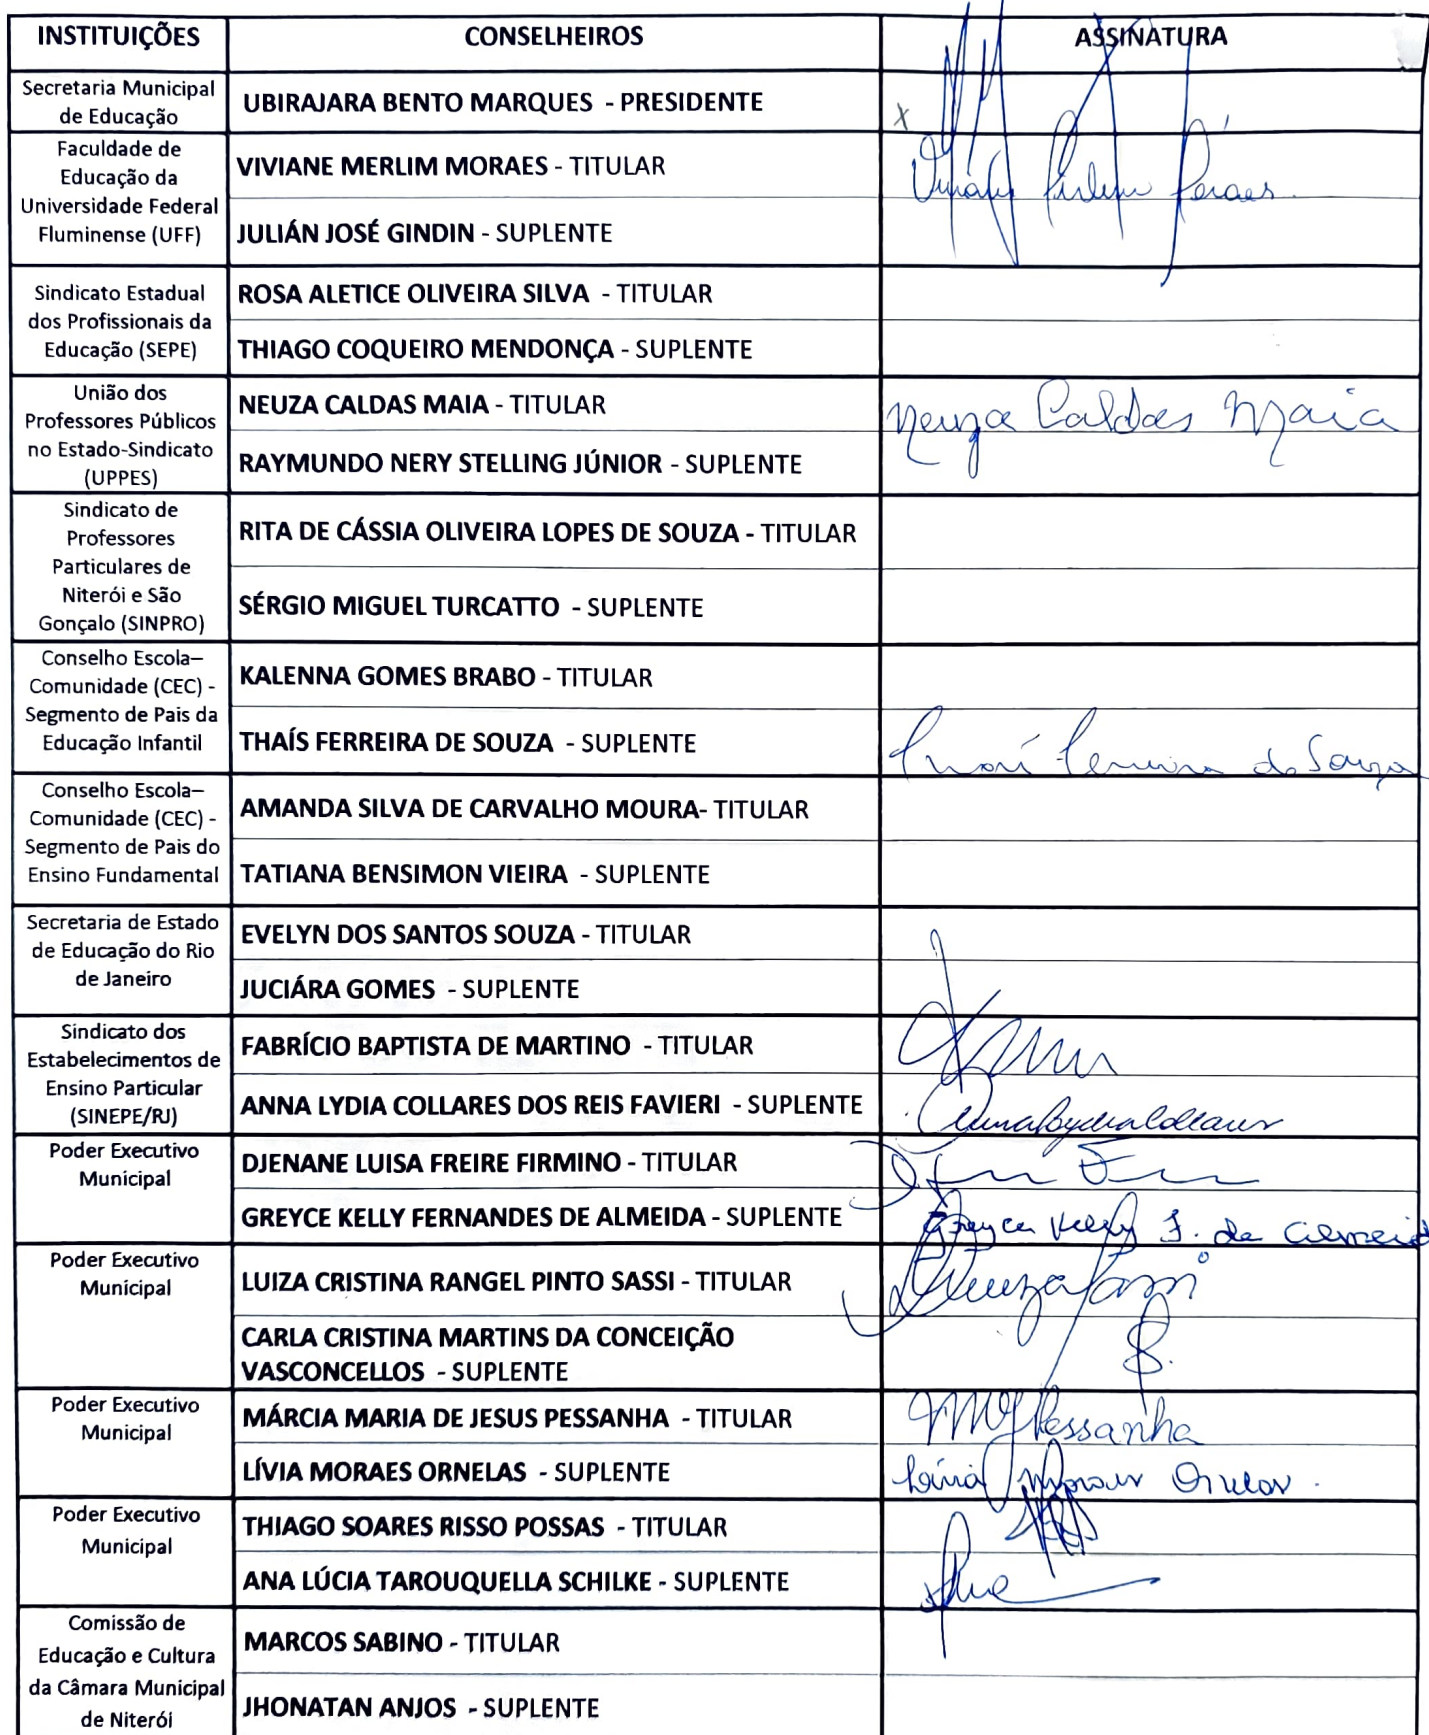 INSTITUIÇÕES CONSELHEIROS ASSINATURA
Secretaria Municipal
de Educação
UBIRAJARA BENTO MARQUES - PRESIDENTE
x
Faculdade de
Educação da
Universidade Federal
Fluminense (UFF)
VIVIANE MERLIM MORAES - TITULAR
JULIÁN JOSÉ GINDIN - SUPLENTE
Sindicato Estadual
dos Profissionais da
Educação (SEPE)
ROSA ALETICE OLIVEIRA SILVA - TITULAR
THIAGO COQUEIRO MENDONÇA - SUPLENTE
União dos
Professores Públicos
no Estado-Sindicato
(UPPES)
NEUZA CALDAS MAIA - TITULAR
Neuza Caldas Maia
RAYMUNDO NERY STELLING JÚNIOR - SUPLENTE
Sindicato de
Professores
Particulares de
Niterói e São
Gonçalo (SINPRO)
RITA DE CÁSSIA OLIVEIRA LOPES DE SOUZA - TITULAR
SÉRGIO MIGUEL TURCATTO - SUPLENTE
Conselho Escola–
Comunidade (CEC) -
Segmento de Pais da
Educação Infantil
KALENNA GOMES BRABO - TITULAR
THAÍS FERREIRA DE SOUZA - SUPLENTE
Thaís Ferreira de Souza
Conselho Escola–
Comunidade (CEC) -
Segmento de Pais do
Ensino Fundamental
AMANDA SILVA DE CARVALHO MOURA- TITULAR
TATIANA BENSIMON VIEIRA - SUPLENTE
Secretaria de Estado
de Educação do Rio
de Janeiro
EVELYN DOS SANTOS SOUZA - TITULAR
JUCIÁRA GOMES - SUPLENTE
Sindicato dos
Estabelecimentos de
Ensino Particular
(SINEPE/RJ)
FABRÍCIO BAPTISTA DE MARTINO - TITULAR
ANNA LYDIA COLLARES DOS REIS FAVIERI - SUPLENTE
Anna Lydia Collares
Poder Executivo
Municipal
DJENANE LUISA FREIRE FIRMINO - TITULAR
GREYCE KELLY FERNANDES DE ALMEIDA - SUPLENTE
Greyce Kelly F. de Almeid
Poder Executivo
Municipal
LUIZA CRISTINA RANGEL PINTO SASSI - TITULAR
Luiza Sassi
CARLA CRISTINA MARTINS DA CONCEIÇÃO
VASCONCELLOS - SUPLENTE
Poder Executivo
Municipal
MÁRCIA MARIA DE JESUS PESSANHA - TITULAR
MMJPessanha
LÍVIA MORAES ORNELAS - SUPLENTE
Lívia Moraes Ornelas
Poder Executivo
Municipal
THIAGO SOARES RISSO POSSAS - TITULAR
ANA LÚCIA TAROUQUELLA SCHILKE - SUPLENTE
Comissão de
Educação e Cultura
da Câmara Municipal
de Niterói
MARCOS SABINO - TITULAR
JHONATAN ANJOS - SUPLENTE